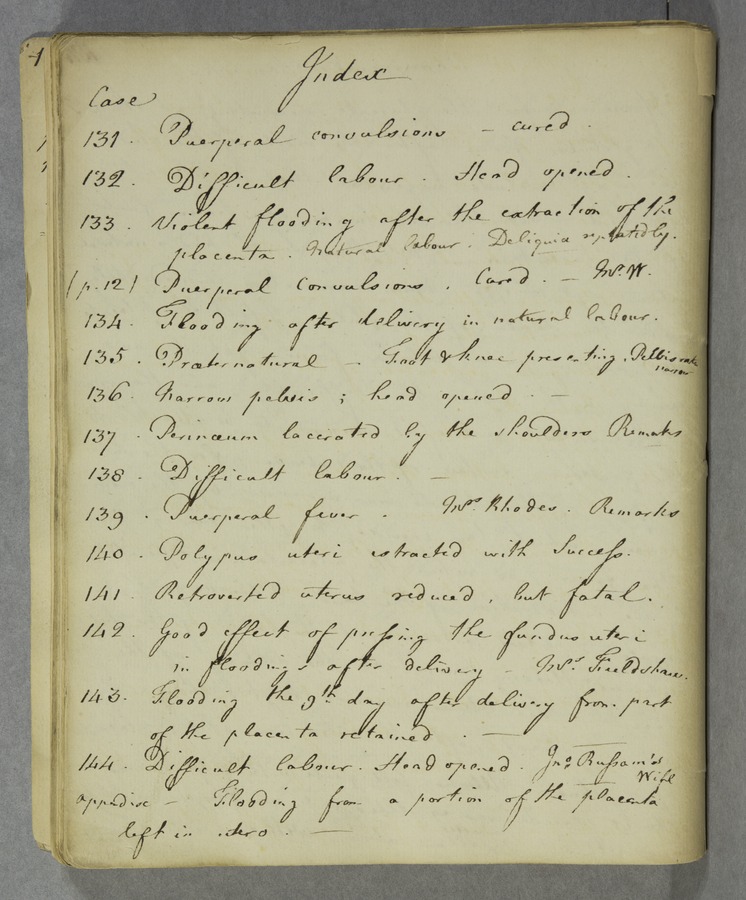 Index
Case
131 . Puerperal convulsions – cured .
132 . Difficult labour . Head opened .
133 . Violent flooding after the extraction of the
placenta . Natural labour . Deliquia repeatedly .
(p. 12) Puerperal convulsions . Cured . – Mrs. W.
134 . Flooding after delivery in natural labour .
135 . Præternatural – Foot & knee presenting . Pelvis rather
narrow
136 . Narrow pelvis ; head opened . –
137 . Perinæum lacerated by the shoulders Remarks
138 . Difficult labour . –
139 . Puerperal fever . Mrs. Rhodes . Remarks
140 . Polypus uteri extracted with Success .
141 . Retroverted uterus reduced , but fatal .
142 . Good effect of pressing the fundus uteri
in floodings after delivery – Mrs. Fieldshaw .
143 . Flooding the 9th day after delivery from part
of the placenta retained . –
144 . Difficult labour . Head opened . Jno. Russam's
Wife
appendix – Flooding from a portion of the placenta
left in utero . –